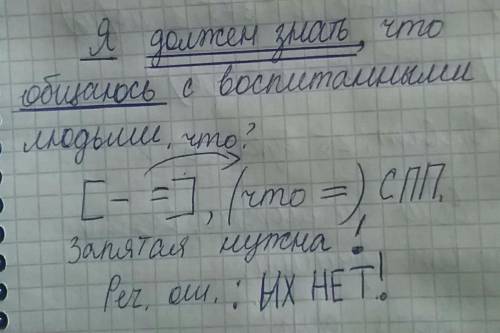 Я должен знать, что
общаюсь с воспитанными
людьми, что?
[– =], (что =) СПП.
Запятая нужна!
Реч. ош.: ИХ НЕТ!